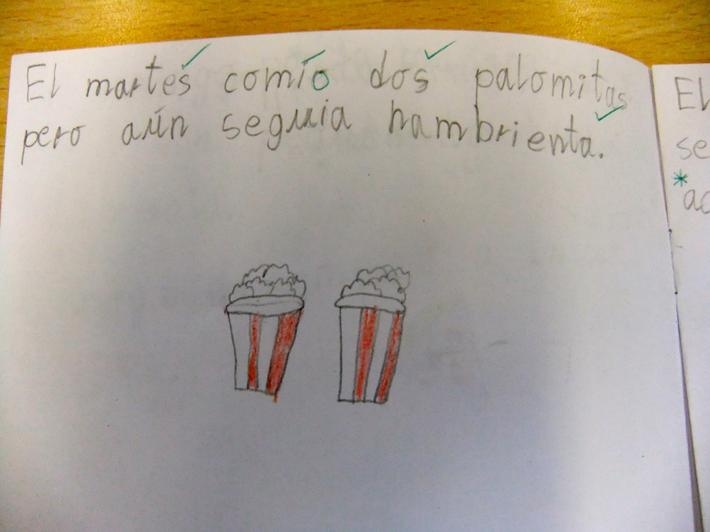 El martes comío dos palomitas
pero aún seguia hambrienta.
El
se
* ac